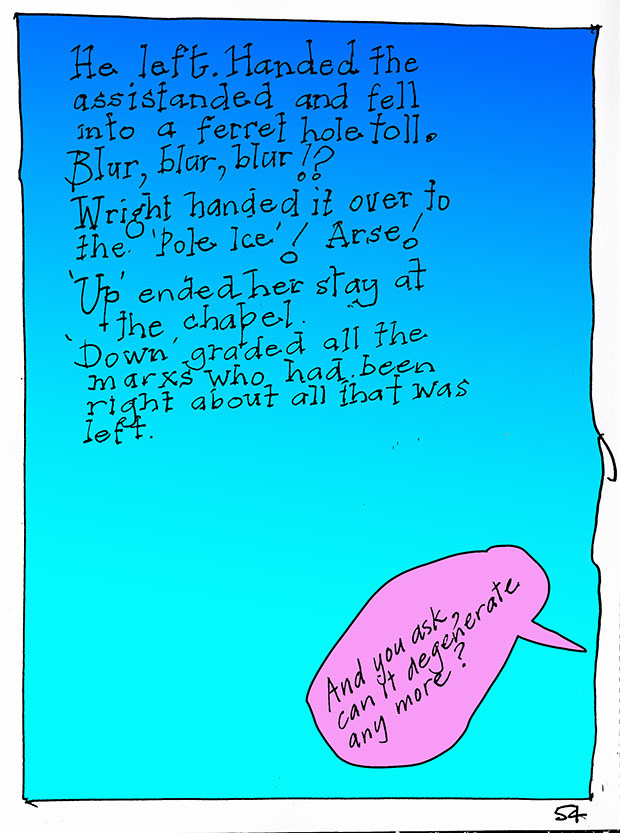 He left. Handed the
assistanded and fell
into a ferret hole toll.
Blur, blur, blur!?
Wright handed it over to
the 'Pole Ice'! Arse!
'Up' ended her stay at
the chapel.
'Down' graded all the
marxs who had been
right about all that was
left.
And you ask,
can it degenerate
any more?
54